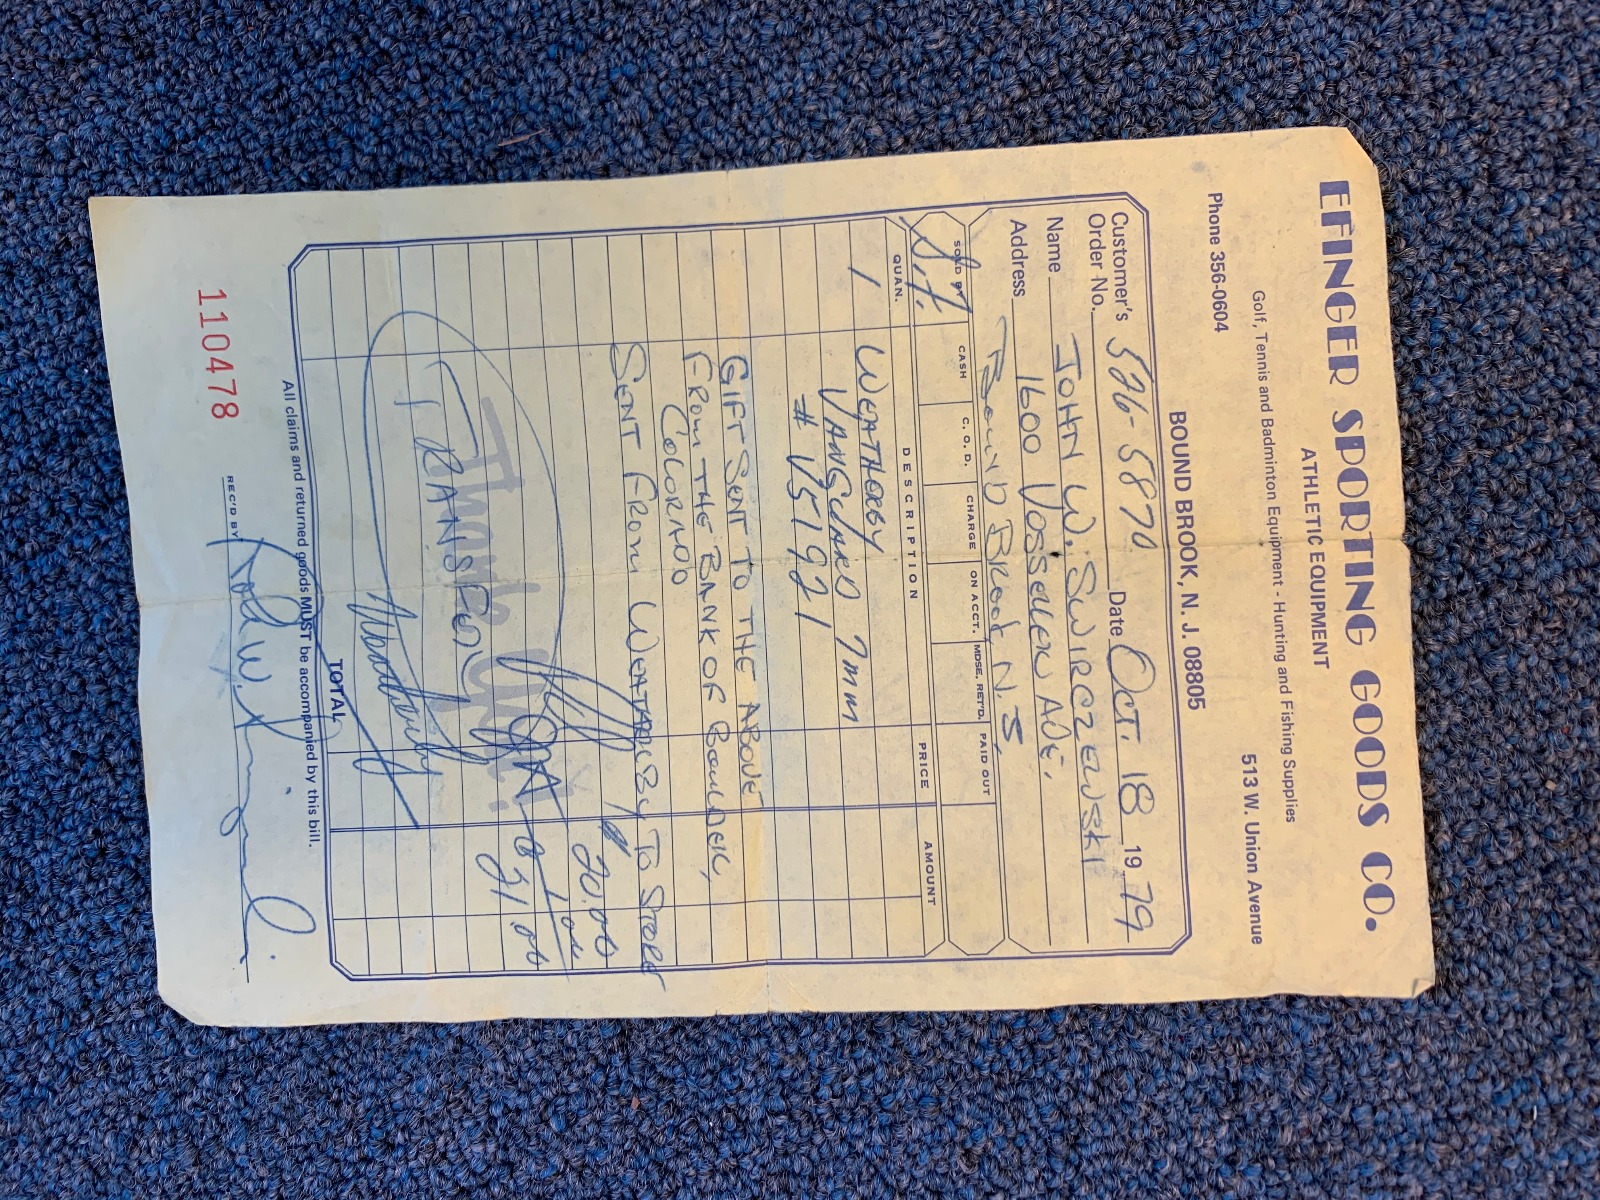 EFINGER SPORTING GOODS CO.
ATHLETIC EQUIPMENT
Golf, Tennis and Badminton Equipment - Hunting and Fishing Supplies
513 W. Union Avenue
Phone 356-0604
BOUND BROOK, N. J. 08805
Customer's
Order No. 526-5870 Date Oct. 18 1979
Name JOHN W. SWIRCZEWSKI
Address 1600 VOSSELLER AVE.
BOUND BROOK N.J.
SOLD BY CASH C. O. D. CHARGE ON ACCT. MDSE. RET'D. PAID OUT
QUAN. DESCRIPTION PRICE AMOUNT
1 WEATHERBY
VANGUARD 7mm
# V51921
GIFT SENT TO THE ABOVE
FROM THE BANK OF BOULDER,
COLORADO
SENT FROM WEATHERBY TO STORE
20.00
1.00
21.00
Thank You!
TRANSFER
TOTAL
All claims and returned goods MUST be accompanied by this bill.
110478 REC'D BY